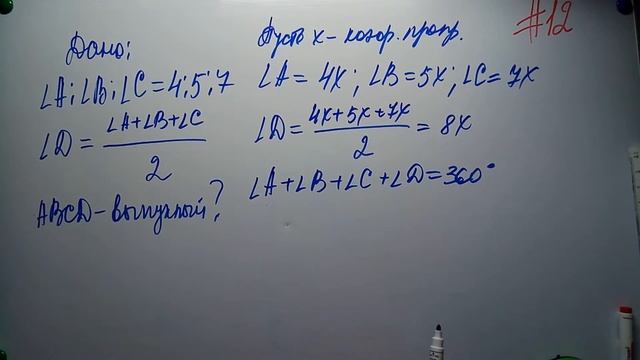 #12
Дано:
∠A:∠B:∠C=4:5:7
∠D=
∠A+∠B+∠C
2
ABCD-выпуклый?
Пусть x-коэф. проп.
∠A=4x; ∠B=5x; ∠C=7x
∠D=
4x+5x+7x
2
=8x
∠A+∠B+∠C+∠D=360°